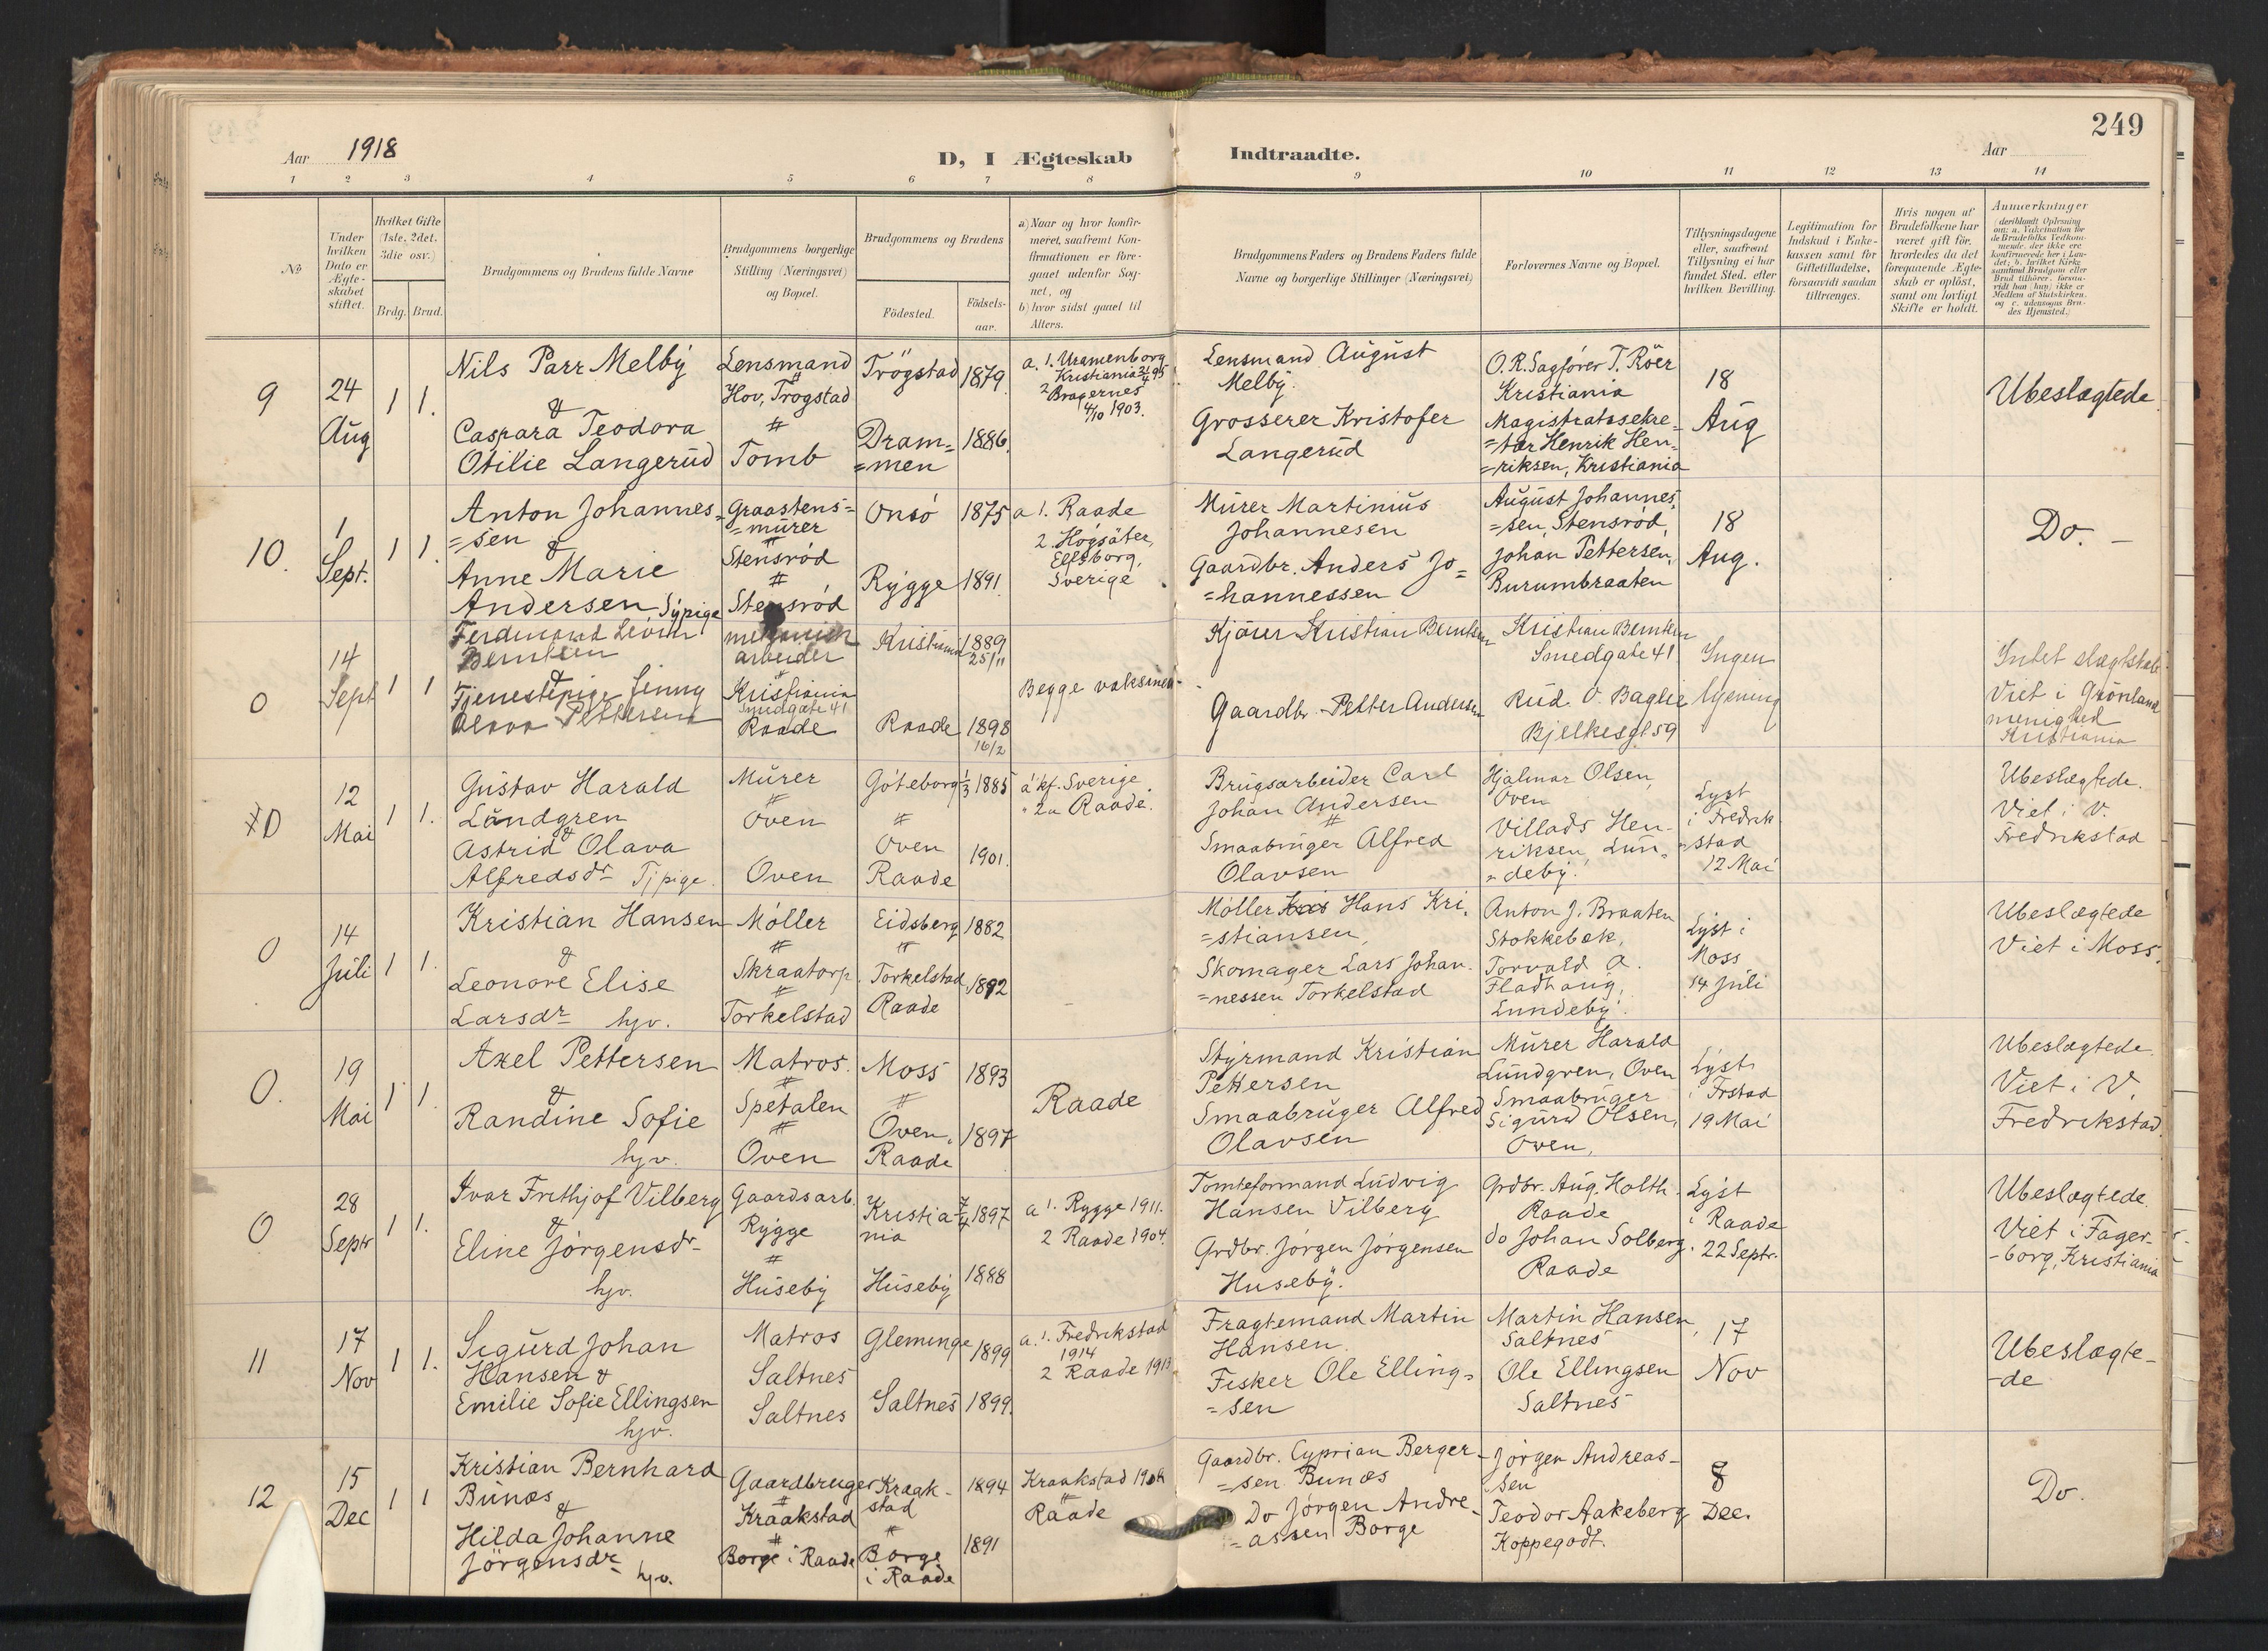 249
Aar 1918
D, I Ægteskab Indtraadte.
Aar
1 2 3 4 5 6 7 8 9 10 11 12 13 14
No
Under
hvilken
Dato er
Ægte-
skabet
stiftet.
Hvilket Gifte
(1ste, 2det,
3die osv.)
Brdg. Brud.
Brudgommens og Brudens fulde Navne
Brudgommens borgerlige
Stilling (Næringsvei)
og Bopæl.
Brudgommens og Brudens
Födested.
Födsels-
aar.
a) Naar og hvor konfir-
meret, saafremt Kon-
firmationen er fore-
gaaet udenfor Sog-
net, og
b) hvor sidst gaaet til
Alters.
Brudgommens Faders og Brudens Faders fulde
Navne og borgerlige Stillinger (Næringsvei)
Forlovernes Navne og Bopæl.
Tillysningsdagene
eller, saafremt
Tillysning ei har
fundet Sted, efter
hvilken Bevilling.
Legitimation for
Indskud i Enke-
kassen samt for
Giftetilladelse,
forsaavidt saadan
tiltrænges.
Hvis nogen af
Brudefolkene har
været gift för,
hvorledes da det
foregaaende Ægte-
skab er oplöst,
samt om lovligt
Skifte er holdt.
Anmerkninger
(deriblandt Oplysning
om: a. Vakcination for
de Brudefolks Vedkom-
mende, der ikke ere
konfirmerede her i Lan-
det; b. hvilket Kirke-
samfund Brudgom eller
Brud tilhörer, forsaa-
vidt han (hun) ikke er
Medlem af Statskirken,
og c. udensogns Bru-
des Hjemsted.)
9
24
Aug
1 1.
Nils Parr Melby
&
Caspara Teodora
Otilie Langerud
Lensmand
Hov, Trögstad
Tomb
Trögstad 1879
Dram=
=men 1886.
a. 1. Uranienborg
Kristiania 21/4 95
2 Bragernes
4/10 1903.
Lensmand August
Melby.
Grosserer Kristofer
Langerud
O.R.Sagförer T. Röer
Kristiania
Magistratssekre=
=tær Henrik Hen=
=riksen, Kristiania
18
Aug
Ubeslægtede
10.
1
Sept.
1 1.
Anton Johannes=
=sen
&
Anne Marie
Andersen Sypige
Graastens=
=murer
Stensröd
Stensröd
Onsö 1875
Rygge 1891.
a 1. Raade
2. Högsäter,
Elfsborg,
Sverige
Murer Martinius
Johannesen
Gaardbr. Anders Jo=
=hannessen
August Johannes=
=sen, Stensröd,
Johan Pettersen,
Burumbraaten
18
Aug.
Do. –
0
14
Sept
1 1
Ferdinand Levin
Berntsen
&
Tjenestepige Jenny
Olava Pettersen
mekanisk
arbeider
Kristiania
Smedgate 41
Raade
Kristiania 1889
25/11
Raade 1898
16/2
Begge vaksinert
Kjörer Kristian Berntsen
Gaardbr. Petter Andersen
Kristian Berntsen
Smedgate 41
Rud. O. Baglie
Bjelkesgt 59
Ingen
lysning
Intet slægtskab
Viet i Grönland
menighed
Kristiania
0
12
Mai
1 1.
Gustav Harald
Lundgren
&
Astrid Olava
Alfredsdr Tjpige.
Murer
Oven
Oven
Göteborg 1/3 1885
Oven
Raade 1901.
a 1 kf. Sverige
" 2u Raade.
Brugsarbeider Carl
Johan Andersen
Smaabruger Alfred
Olavsen
Hjalmar Olsen,
Oven
Villads Hen-
riksen, Lun=
=deby.
Lyst
i Fredrik
=stad
12 Mai
Ubeslægtede.
Viet i V.
Fredrikstad
0
14
Juli
1 1.
Kristian Hansen
&
Leonore Elise
Larsdr hjv.
Möller
Skraatorp
Torkelstad
Eidsberg 1882
Torkelstad
Raade 1892
Möller Hans Kri=
=stiansen,
Skomager Lars Johan=
=nessen Torkelstad
Anton J. Braaten
Stokkebæk,
Torvald A.
Fladhaug,
Lundeby.
Lyst i
Moss
14 Juli
Ubeslægtede
Viet i Moss.
0.
19
Mai
1 1.
Axel Pettersen
&
Randine Sofie
hjv.
Matros.
Spetalen
Oven
Moss 1893
Oven,
Raade 1897
Raade
Styrmand Kristian
Pettersen
Smaabruger Alfred
Olavsen
Murer Harald
Lundgren, Oven
Smaabruger
Sigurd Olsen,
Oven,
Lyst
i Frstad
19 Mai
Ubeslægtede.
Viet i V,
Fredrikstad.
0
28
Septr
1 1.
Ivar Frithjof Vilberg
&
Eline Jörgensdr
hjv.
Gaardsarb.
Rygge
Huseby
Kristia
nia 7/4 1897
Huseby 1888
a 1. Rygge 1911.
2 Raade 1904.
Tomteformand Ludvig
Hansen Vilberg
Grdbr. Jörgen Jörgensen
Huseby.
Grdbr. Aug. Holth
Raade
do Johan Solberg.
Raade
Lyst
i Raade
22 Septr.
Ubeslægtede.
Viet i Fager-
-borg, Kristiania
11
17
Nov
1 1.
Sigurd Johan
Hansen &
Emilie Sofie Ellingsen
hjv.
Matros
Saltnes
Saltnes
Glemminge 1899
Saltnes 1899.
a. 1. Fredrikstad
1914
2 Raade 1913
Fragtemand Martin
Hansen.
Fisker Ole Elling=
=sen
Martin Hansen,
Saltnes
Ole Ellingsen
Saltnes
17
Nov
Ubeslægte-
-de
12
15
Dec
1 1
Kristian Bernhard
Bunæs
&
Hilda Johanne
Jörgensdr hjv.
Gaardbruger
Kraakstad
Borge i Raade
Kraak-
stad 1894
Borge
i Raade 1891
Kraakstad
Raade
Gaardbr. Cyprian Berger-
=sen Bunæs
Do Jörgen Andre-
=assen Borge
Jörgen Andreas-
sen
Teodor Aakeberg
Koppegodt.
8
Dec.
Do.